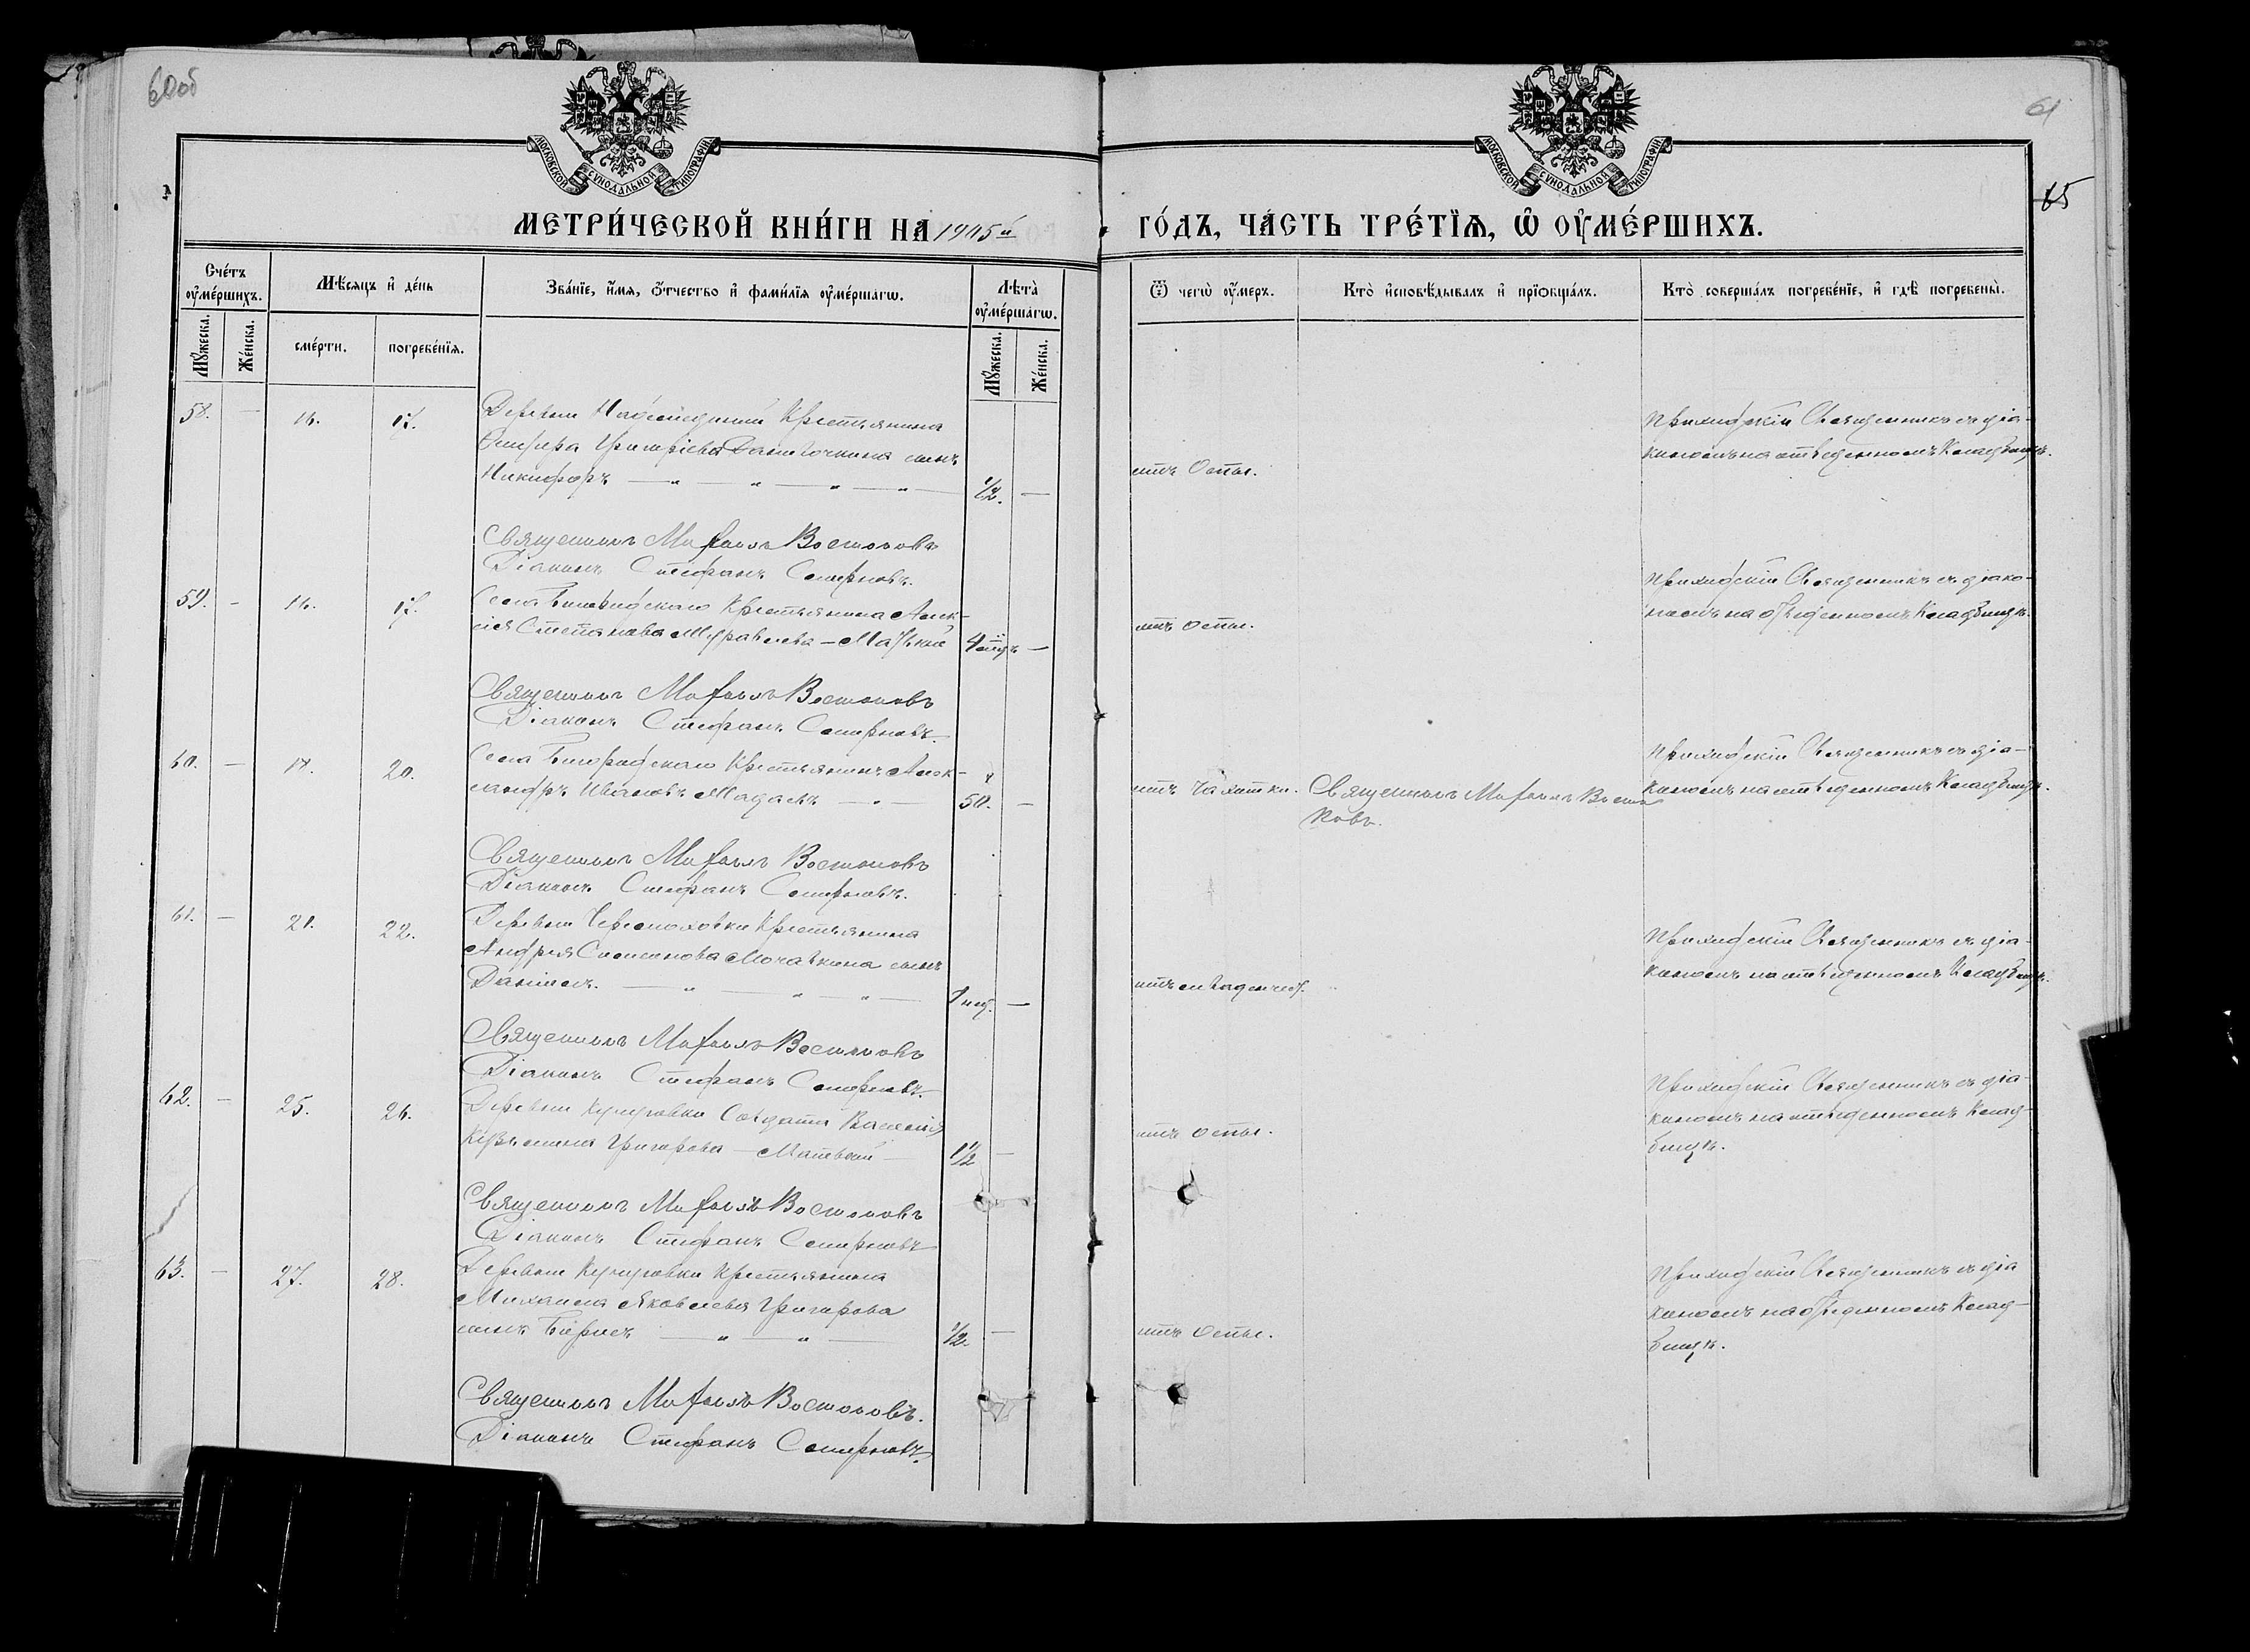 60об
61
65
МОСКОВСКОЙ СѴНОДАЛЬНОЙ ТИПОГРАФІИ
МОСКОВСКОЙ СѴНОДАЛЬНОЙ ТИПОГРАФІИ
МЕТРИ́ЧЕСКОЙ КНИ́ГИ НА 1905й ГО́ДЪ, ЧА́СТЬ ТРЕ́ТЇѦ, Ѡ҆ ОУ҆МЕ́РШИХЪ.
Сче́тъ оу҆ме́ршихъ.
Мꙋ́жеска.
Же́нска.
Мѣ́сѧцъ и҆ де́нь
сме́рти.
погребе́нїѧ.
Зва́нїе, и҆́мѧ, ѻ҆́тчество и҆ фами́лїѧ оу҆ме́ршагѡ.
Лѣ́та оу҆ме́ршагѡ.
Мꙋ́жеска.
Же́нска.
Ѿ чегѡ̀ оу҆́меръ.
Кто̀ и҆сповѣ́дывалъ и҆ прїѡбща́лъ.
Кто̀ соверша́лъ погребе́нїе, и҆ гдѣ̀ погребены̀.
58. — 16. 17. Деревни Крестьянина
Григоріева сынъ
Никифоръ — " — " — " — " — 1/2. —
отъ Оспы.
Приходскій Священникъ съ діа-
кономъ на отведенномъ Кладбищѣ.
Священникъ Михаилъ Востоковъ
Діаконъ Стефанъ Смирновъ.
59. — 16. 17. Села Крестьянина Алек-
сія Степанова Муравлева — Матѳей 4 —
отъ оспы.
Приходскій Священникъ съ діако-
номъ на отведенномъ Кладбищѣ.
Священникъ Михаилъ Востоковъ
Діаконъ Стефанъ Смирновъ.
60. — 20. Села Крестьянинъ Алек-
сандръ Ивановъ — " — 50. —
отъ Чахотки.
Священникъ Михаилъ Восто
ковъ.
Приходскій Священникъ съ діа-
кономъ на отведенномъ Кладбищѣ.
Священникъ Михаилъ Востоковъ
Діаконъ Стефанъ Смирновъ.
61. — 21. 22. Деревни Крестьянина
Андрея сынъ
Даніилъ. — " — " — " — нед. —
отъ младенчест.
Приходскій Священникъ съ діа-
кономъ на отведенномъ Кладбищѣ.
Священникъ Михаилъ Востоковъ
Діаконъ Стефанъ Смирновъ.
62. — 25. 26. Деревни Солдата Василія
Кузьмина Григорова — Матвей — 1 1/2 —
отъ оспы.
Приходскій Священникъ съ діа-
кономъ на отведенномъ Клад-
бищѣ.
Священникъ Михаилъ Востоковъ
Діаконъ Стефанъ Смирновъ
63. — 27. 28. Деревни Крестьянина
Михаила Яковлева Григорова
сынъ Борисъ — " — " — 1/2. —
отъ оспы.
Приходскій Священникъ съ діа
кономъ на отведенномъ Клад-
бищѣ.
Священникъ Михаилъ Востоковъ.
Діаконъ Стефанъ Смирновъ.